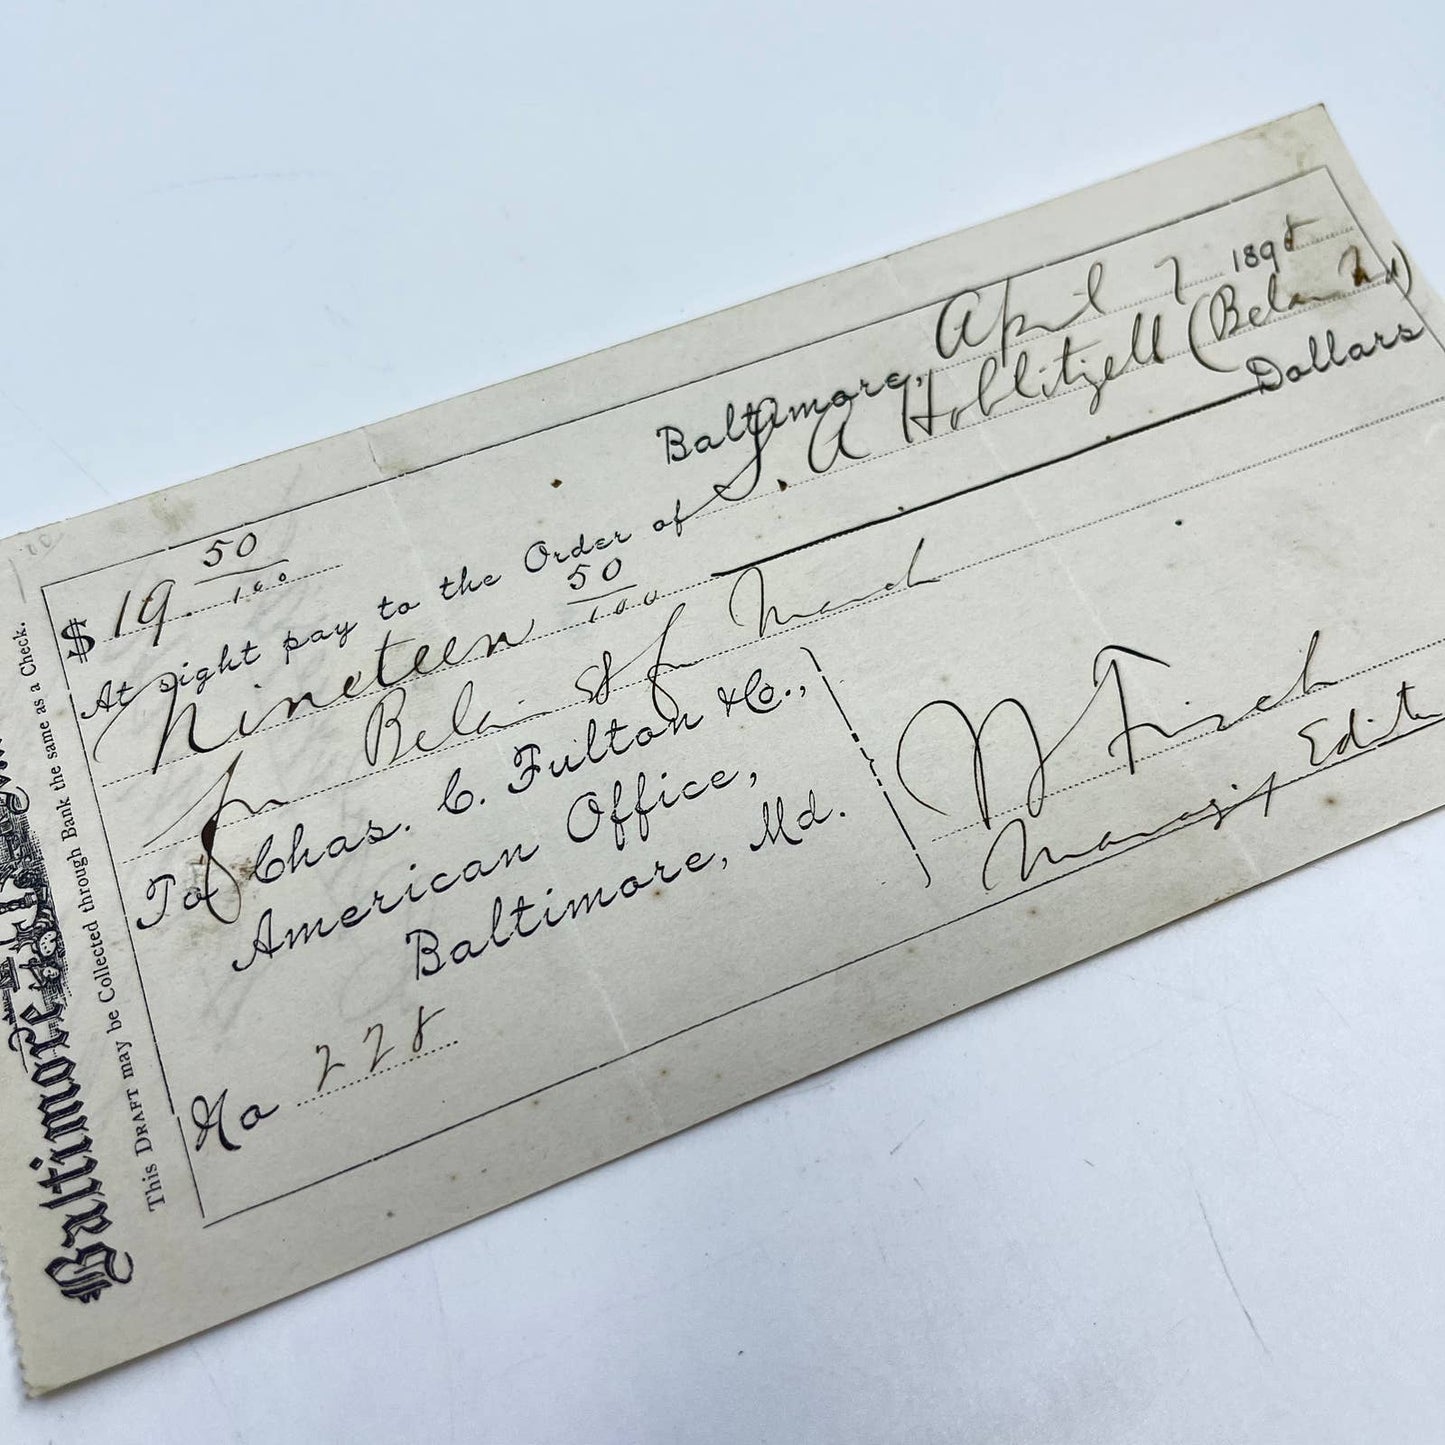 Baltimore, April 7 1898
$19. 50/100
At sight pay to the Order of S. A Hoblitzell (Belair Md)
Nineteen 50/100 Dollars
for Belair for March
To Chas. C. Fulton & Co.,
American Office,
Baltimore, Md.
W Finch
Managing Editor
No 228
Baltimore
This DRAFT may be Collected through Bank the same as a Check.